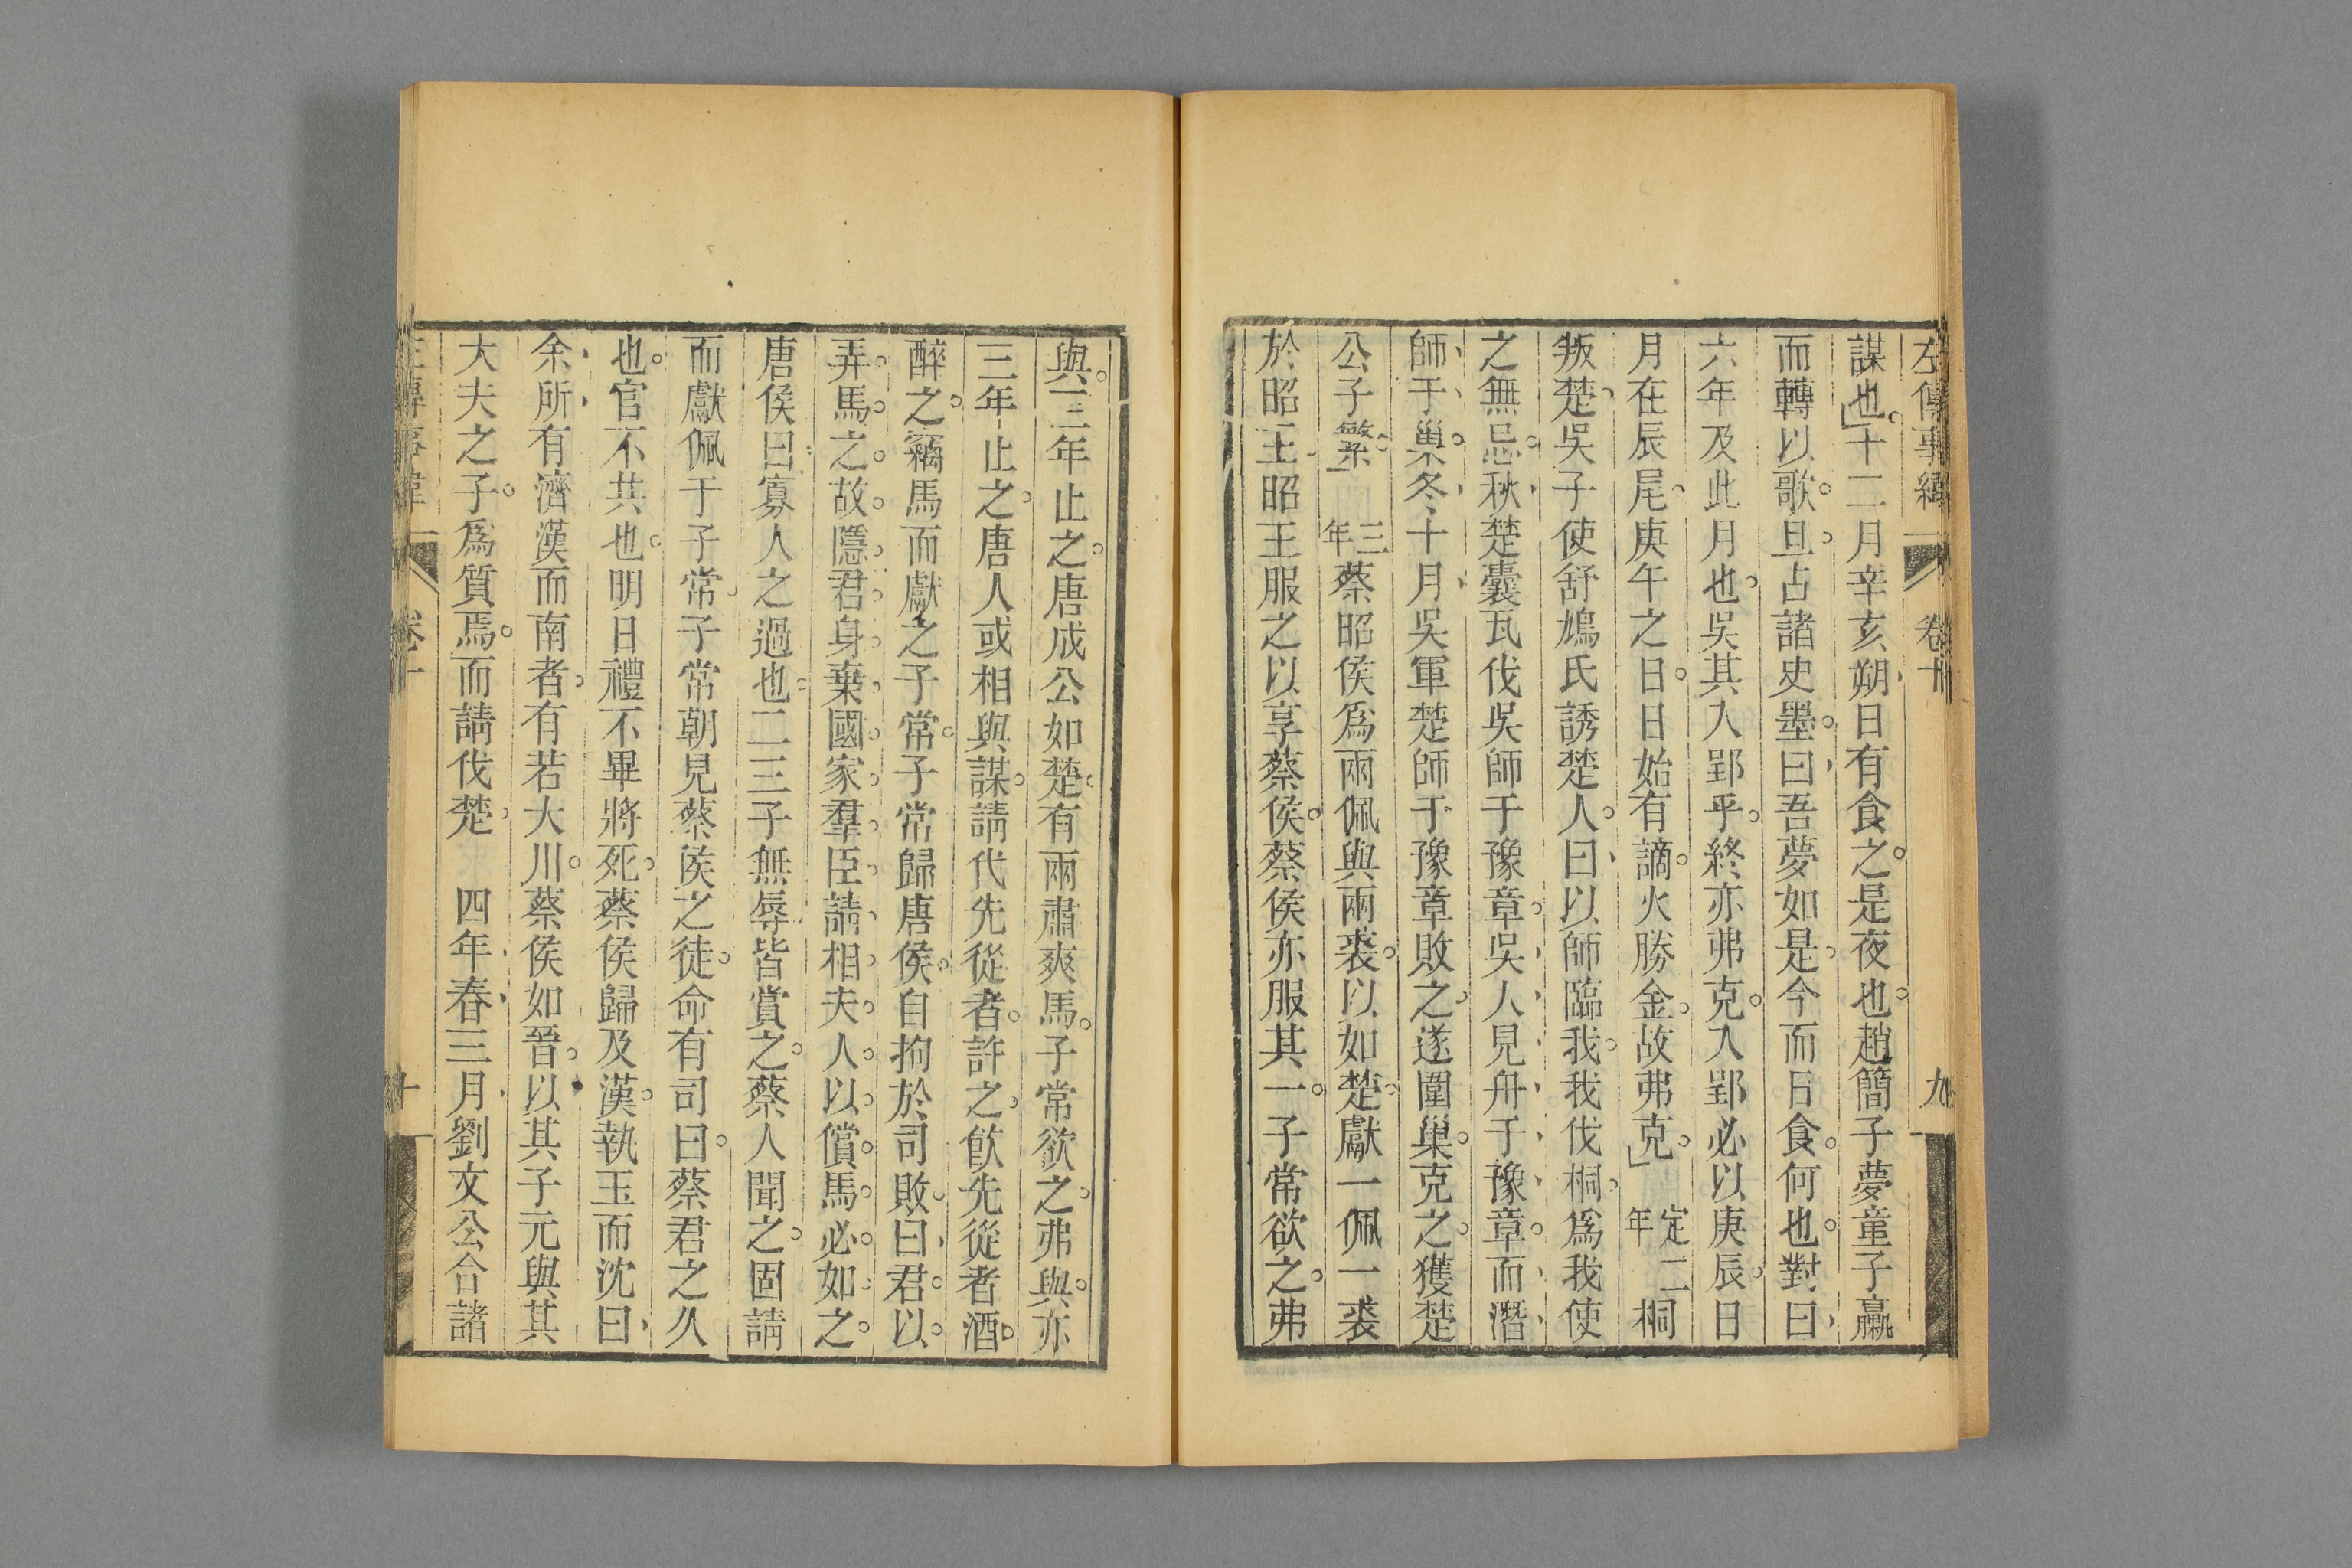 左傳事緯 卷十 九
謀也十二月辛亥朔日有食之是夜也趙簡子夢童子臝
而轉以歌旦占諸史墨曰吾夢如是今而日食何也對曰
六年及此月也吳其入郢乎終亦弗克入郢必以庚辰日
月在辰尾庚午之日日始有謫火勝金故弗克 定二年 桐
叛楚吳子使舒鳩氏誘楚人曰以師臨我我伐桐爲我使
之無忌秋楚囊瓦伐吳師于豫章吳人見舟于豫章而潛
師于巢冬十月吳軍楚師于豫章敗之遂圍巢克之獲楚
公子繁 三年 蔡昭侯爲兩佩與兩裘以如楚獻一佩一裘
於昭王昭王服之以享蔡侯蔡侯亦服其一子常欲之弗
與三年止之唐成公如楚有兩肅爽馬子常欲之弗與亦
三年止之唐人或相與謀請代先從者許之飮先從者酒
醉之竊馬而獻之子常子常歸唐侯自拘於司敗曰君以
弄馬之故隱君身棄國家羣臣請相夫人以償馬必如之
唐侯曰寡人之過也二三子無辱皆賞之蔡人聞之固請
而獻佩于子常子常朝見蔡侯之徒命有司曰蔡君之久
也官不共也明日禮不畢將死蔡侯歸及漢執玉而沈曰
余所有濟漢而南者有若大川蔡侯如晉以其子元與其
大夫之子爲質焉而請伐楚 四年春三月劉文公合諸
卷十 十